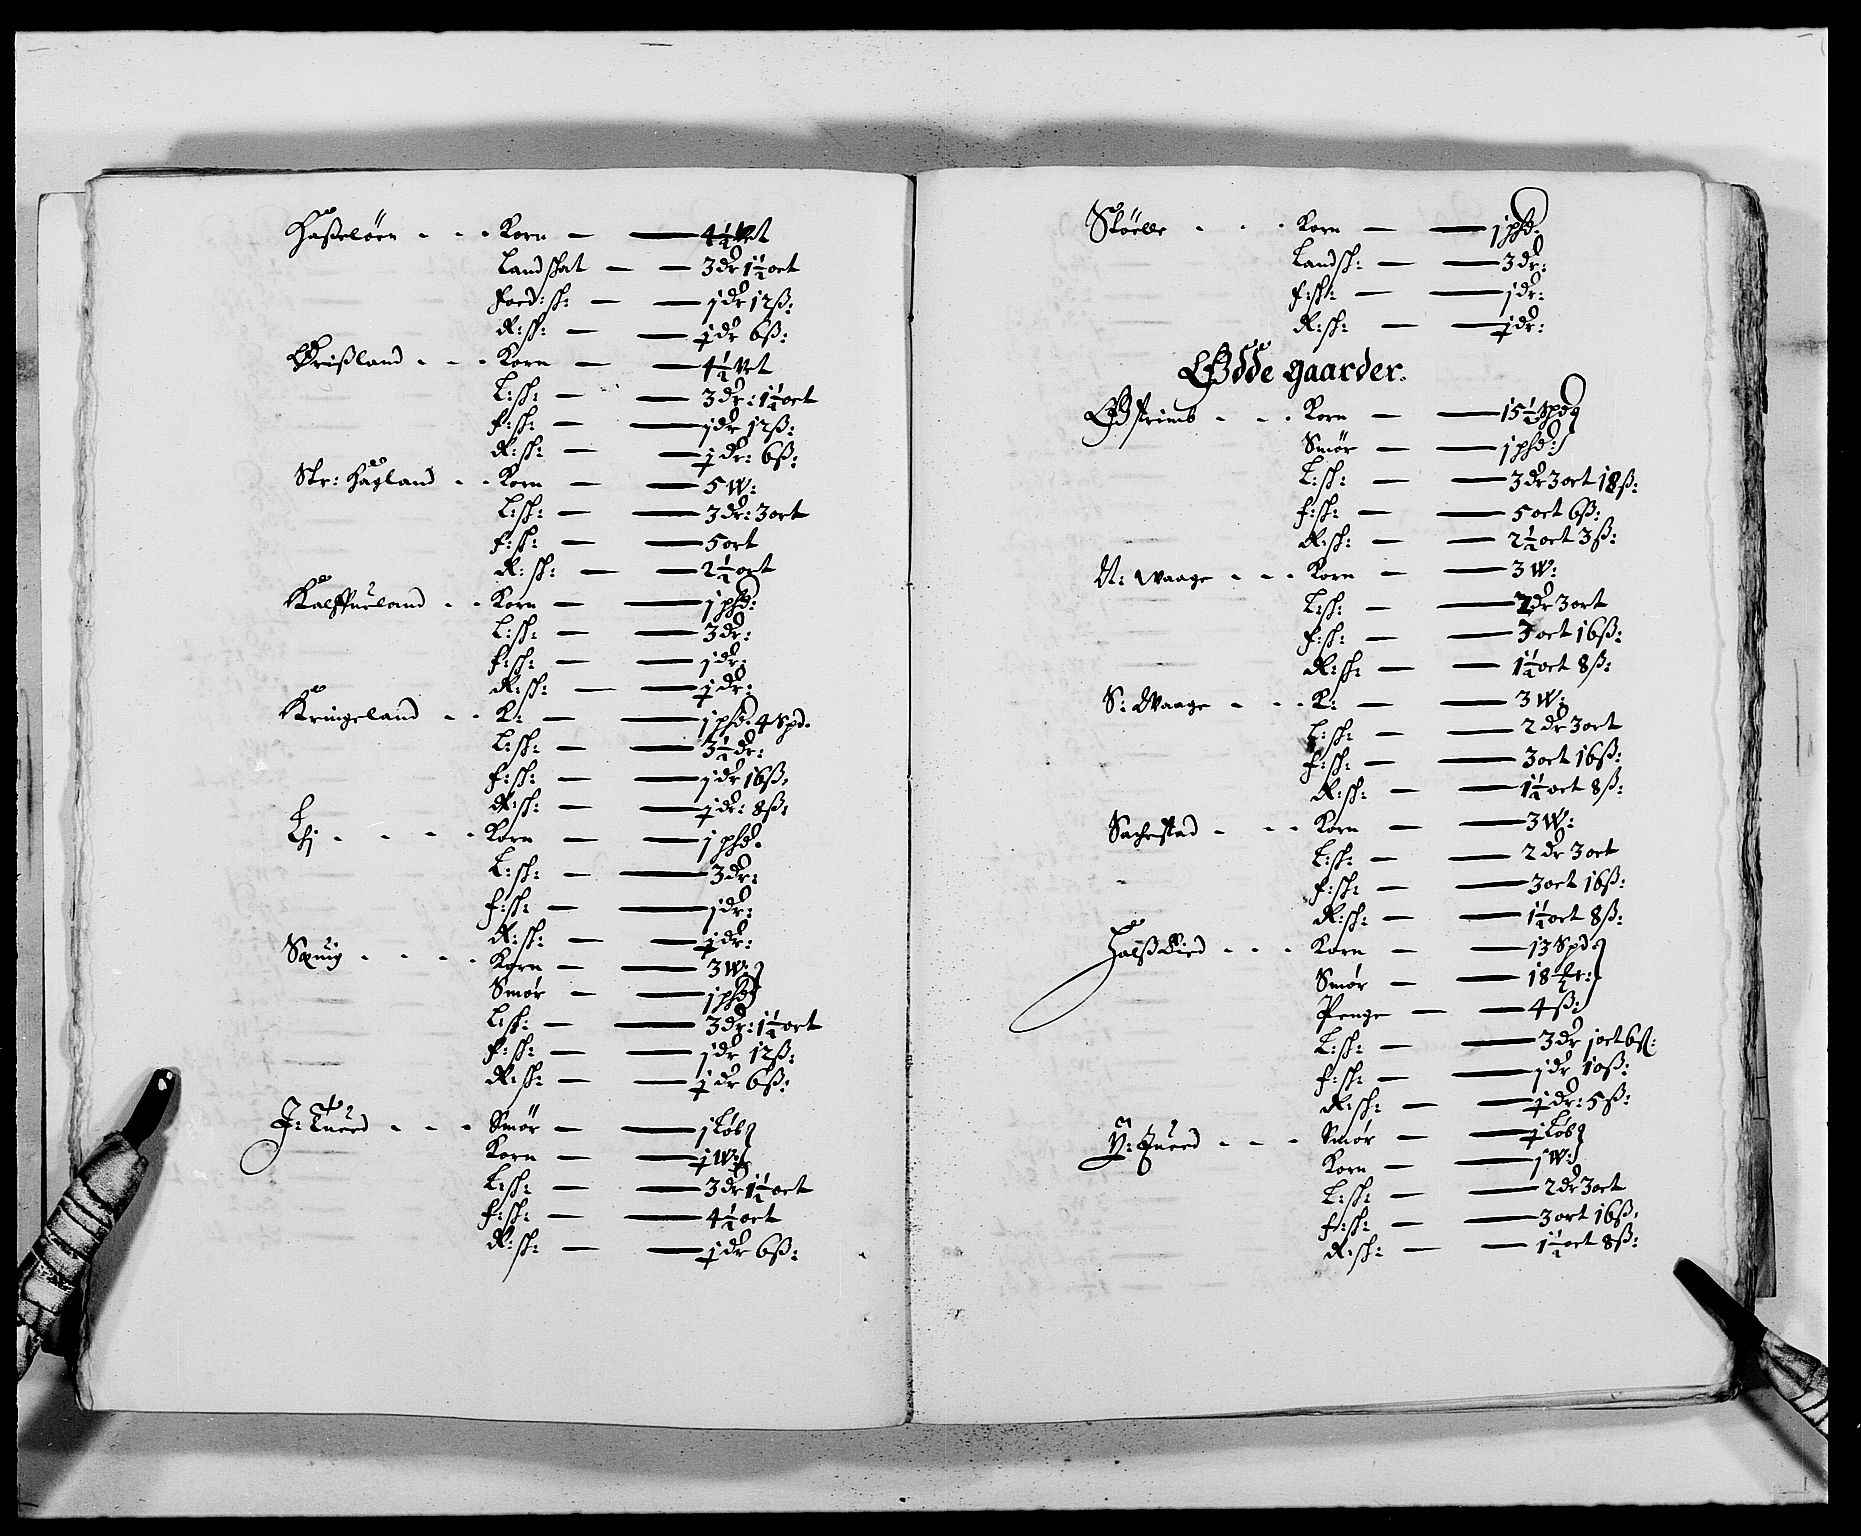 Haßeløen - - - Korn — — 4½ Vet
Landskat — — 3 dr 1½ ort
Foed: sk: — — j dr 12 ß:
R: sk: — — ½ dr 6 ß:
Grißland - - - Korn — — 4½ Vet
L: sk: — — 3 dr: 1½ ort
F: sk: — — j dr 12 ß:
R: sk: — — ½ dr: 6 ß:
Str: Hagland - - Korn — — 5 W:
L: sk: — — 3 dr: 3 ort
F: sk: — — 5 ort
R: sk: — — 2½ ort
Kalffueland - - Korn — — j phd:
L: sk: — — 3 dr:
F: sk: — — j dr:
R: sk: — — ½ dr:
Kringeland - - K: — — j phd. 4 Spd.
L: sk: — — 3½ dr:
F: sk: — — j dr 16 ß.
R: sk: — — ½ dr: 8 ß:
Lhj - - - - Korn — — j phd.
L: sk: — — 3 dr:
F: sk: — — j dr:
R: sk: — — ½ dr:
- - - - Korn — — 3 W:
Smør — — j phd
L: sk: — — 3 dr: 1½ ort
F: sk: — — j dr 12 ß:
R: sk: — — ½ dr 6 ß:
- - - Smør — — j Løb
Korn — — ½ W:
L: sk: — — 3 dr 1½ ort
F: sk: — — 4½ ort
R: sk: — — ½ dr 6 ß:
Støelle - - - Korn — — j phd.
Landsk: — — 3 dr:
F: sk: — — j dr:
R: sk: — — ½ dr:
Ødde gaarder.
- - - Korn — — 15½ Spd
Smør — — j phd:
L: sk: — — 3 dr 3 ort 18 ß:
F: sk: — — 5 ort 6 ß:
R: sk: — — 2½ ort 3 ß:
N: Waage - - - Korn — — 3 W:
L: sk: — — 2 dr 3 ort
F: sk: — — 3 ort 16 ß:
R: sk: — — 1½ ort 8 ß:
S: Waage - - - K: — — 3 W:
L: sk: — — 2 dr 3 ort
F: sk: — — 3 ort 16 ß:
R: sk: — — 1½ ort 8 ß:
Sachestad - - - Korn — — 3 W:
L: sk: — — 2 dr 3 ort
F: sk: — — 3 ort 16 ß:
R: sk: — — 1½ ort 8 ß:
- - - Korn — — 13 Spd
Smør — — 18
Penge — — 4 ß:
L: sk: — — 3 dr j ort 6 ß:
F: sk: — — j dr 10 ß:
R: sk: — — ½ dr: 5 ß:
- - - Smør — — ½ Løb
Korn — — j W:
L: sk: — — 2 dr 3 ort
F: sk: — — 3 ort 16 ß.
R: sk: — — 1½ ort 8 ß: